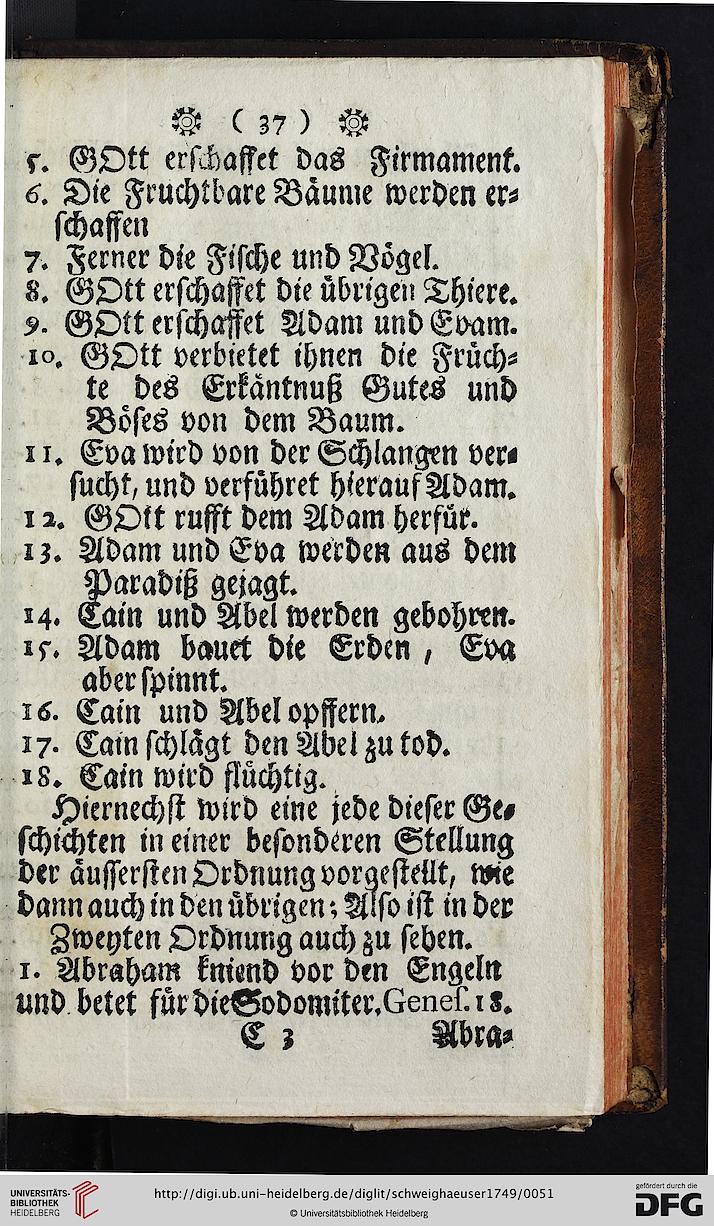 ( 37 )
5. GOtt erschaffet das Firmament.
6. Die Fruchtbare Bäume werden er-
schaffen
7. Ferner die Fische und Vögel.
8. GOtt erschaffet die übrigen Thiere.
9. GOtt erschaffet Adam und Evam.
10. GOtt verbietet ihnen die Früch-
te des Erkäntnuß Gutes und
Böses von dem Baum.
11. Eva wird von der Schlangen ver-
sucht, und verführet hierauf Adam.
12. GOtt rufft dem Adam herfür.
13. Adam und Eva werden aus dem
Paradiß gejagt.
14. Cain und Abel werden gebohren.
15. Adam bauet die Erden, Eva
aber spinnt.
16. Cain und Abel opffern.
17. Cain schlägt den Abel zu tod.
18. Cain wird flüchtig.
Hiernechst wird eine jede dieser Ge-
schichten in einer besonderen Stellung
der äussersten Ordnung vorgestellt, wie
dann auch in den übrigen; Also ist in der
Zweyten Ordnung auch zu sehen.
1. Abraham kniend vor den Engeln
und betet für die Sodomiter. Genes. 18.
C 3 Abra-
UNIVERSITÄTS-
BIBLIOTHEK
HEIDELBERG
http://digi.ub.uni-heidelberg.de/diglit/schweighaeuser1749/0051
© Universitätsbibliothek Heidelberg
gefördert durch die
DFG